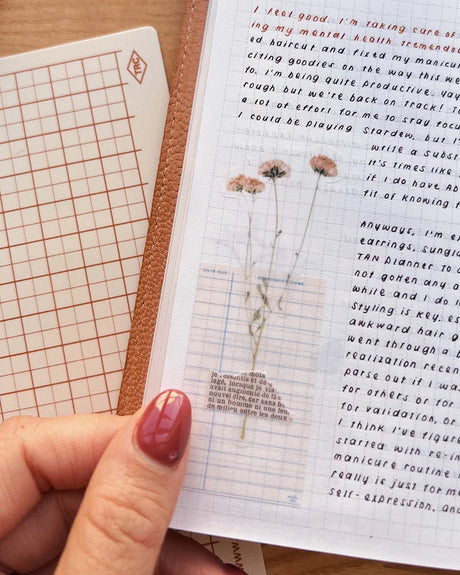 TRC
I feel good. I'm taking care of
ing my mental health tremendou
ed haircut and fixed my manicur
citing goodies on the way this we
to. I'm being quite productive. Yay
rough but we're back on track! T
a lot of effort for me to stay focu
I could be playing Stardew, but I'
write a subst
It's times like
if I do have AD
fit of knowing f
Anyways, I'm e
earrings, sungla
TAN planner to a
not gotten any o
while and I do l
styling is key, es
awkward hair g
went through a b
realization recen
parse out if I was
for others or for
for validation, or
I think I've figure
started with re-in
manicure routine i
really is just for me
self-expression, and
DATE DUE
mois
je ressentis et de
lage, lorsque je vis
avait augmenté de 15 c
nouvel être, car sans bo
ni un homme ni une fem
de milieu entre les deux